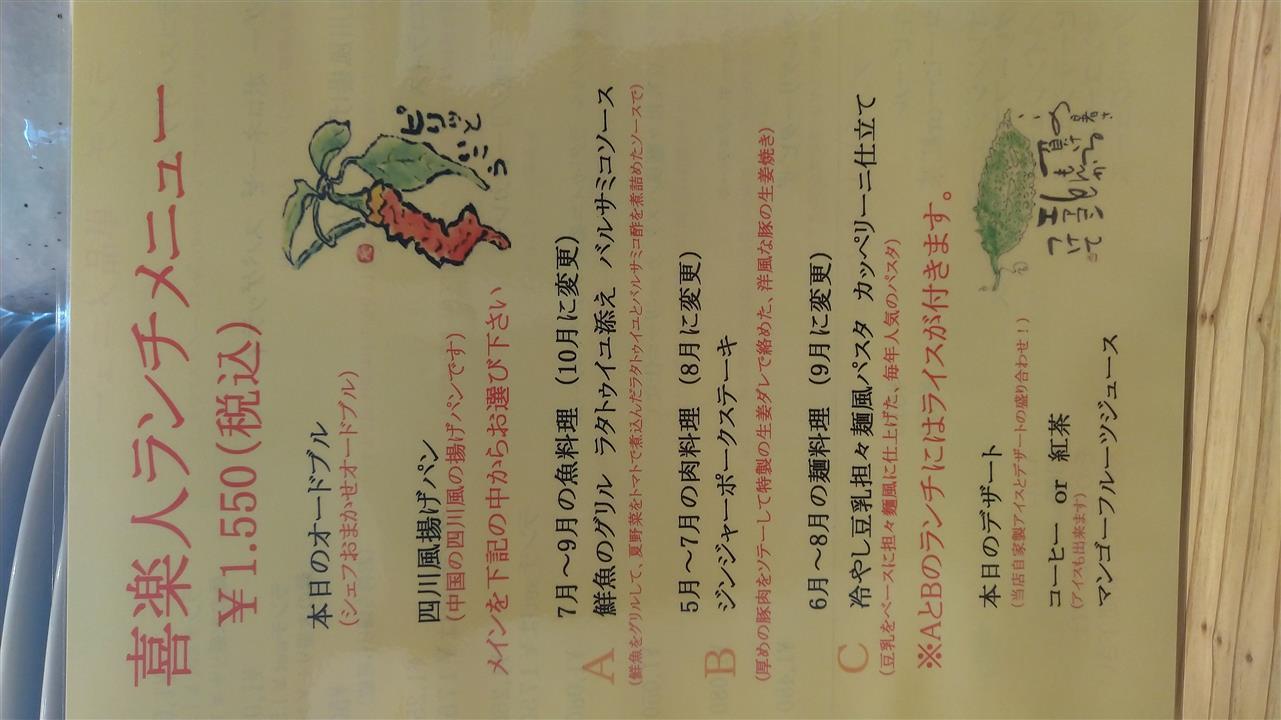 喜楽人ランチメニュー
￥1.550(税込)
本日のオードブル
(シェフおまかせオードブル)
四川風揚げパン
(中国の四川風の揚げパンです)
ピリッと
いこう
メインを下記の中からお選び下さい
7月～9月の魚料理 (10月に変更)
A 鮮魚のグリル ラタトゥイユ添え バルサミコソース
(鮮魚をグリルして、夏野菜をトマトで煮込んだラタトゥイユとバルサミコ酢を煮詰めたソースで)
5月～7月の肉料理 (8月に変更)
B ジンジャーポークステーキ
(厚めの豚肉をソテーして特製の生姜ダレで絡めた、洋風な豚の生姜焼き)
6月～8月の麺料理 (9月に変更)
C 冷やし豆乳担々麺風パスタ カッペリーニ仕立て
(豆乳をベースに担々麺風に仕上げた、毎年人気のパスタ)
※AとBのランチにはライスが付きます。
本日のデザート
(当店自家製アイスとデザートの盛り合わせ！)
コーヒー or 紅茶
(アイスも出来ます)
マンゴーフルーツジュース